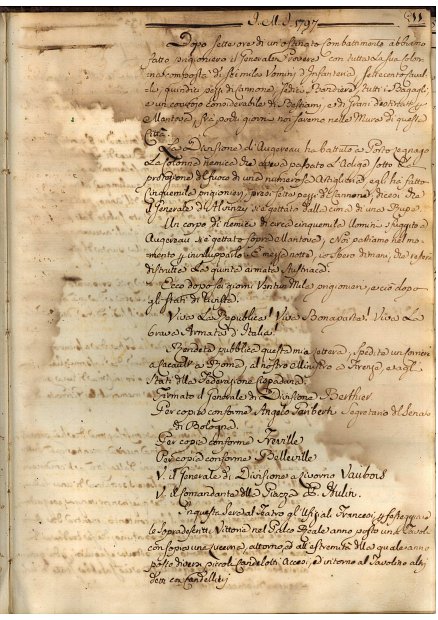 J. M. J. 1797
Dopo sette ore di un ostinato Combattimento abbiamo
fatto prigioniero il Generale Provera con tutta la sua Colon
na composta di sei mila Uomini d'Infanteria, settecento Caval
li, quindici pezzi di Cannone, sedici Bandiere, tutti i Bagagli
e un convojo Considerabile di Bestiami, e di Grani
Mantova, frà pochi giorni noi saremo nelle Mura di questa
Città
La Divisione d'Augereau ha battuto a Porto Legnago
la Colonna nemica che aveva passato l'Adige sotto la
protezione del fuoco di una numerosa Artiglieria, egli ha fatto
cinquemila prigionieri, presi sette pezzi di Cannone, dicesi che
il Generale d'Alvinzy siè gettato dalla cima di una Rupe
Un corpo di nemici di circa cinquemila Uomini sfuggito a
Augereau si è gettato sopra Mantova, e Noi partiamo nel mo
mento per invilupparlo. È mezza notte, io spero dimani,
distrutta la quinta armata Austriaca.
Ecco dopo sei giorni Ventun Mila prigionieri, e ciò dopo
gli stati di rivista.
Viva La Republica! Viva Bonaparte! Viva La
brava Armata d'Italia!
Rendete pubblica questa mia lettera, spedite un Corriere
a Cacault a Roma, al nostro Ministro a Firenze, e agli
Stati della Federazione Cispadana.
Firmato il Generale di Divisione Berthier.
Per copia conforme Angelo Segretario del Senato
di Bologna.
Per copia conforme Freville
Per copia conforme Belleville
V. il Generale di Divisione a Livorno Vaubois
V. il Comandante della Piazza B. Hulin.
In questa sera al Teatro gli Uffiziali Francesi p. festeggiare
le sopradescritte Vittorie nel Palco Reale anno posto una Tavola
con sopra una Lucerna, attorno, ed all'estremità della quale anno
posto diversi piccoli Candelotti Accesi, ed intorno al Tavolino